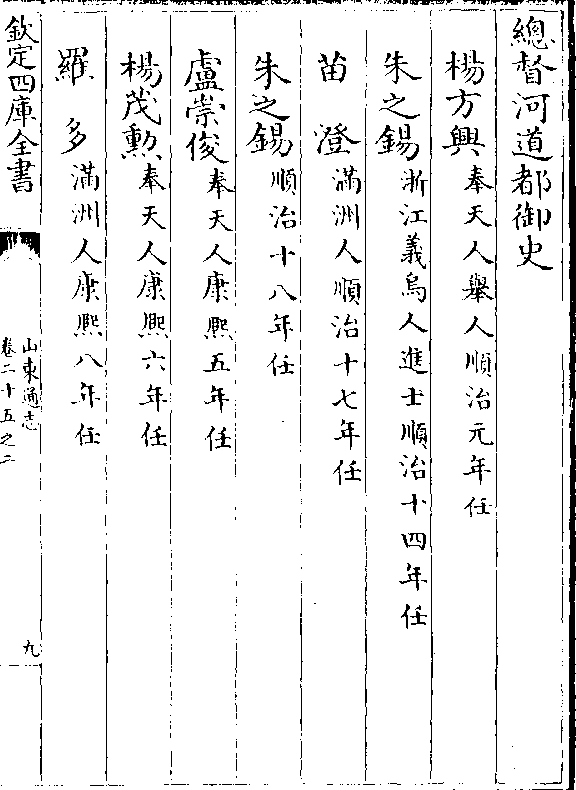 總督河道都御史
楊方興奉天人舉人順治元年任
朱之錫浙江義烏人進士順治十四年任
苗澄滿洲人順治十七年任
朱之錫順治十八年任
盧崇俊奉天人康熙五年任
楊茂勲奉天人康熙六年任
羅多滿洲人康熙八年任
欽定四庫全書
山東通志
卷二十五之二
九